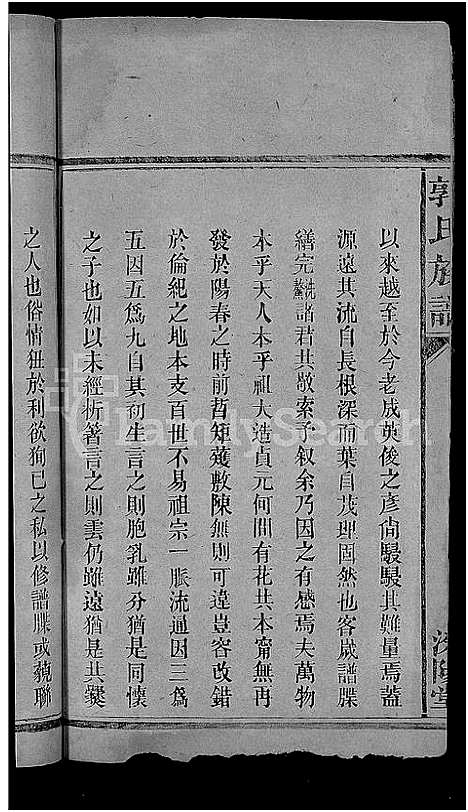 郭氏族譜
汾陽堂
以來越至於今老成英俊之彥尙駸駸其難量焉蓋
源遠其流自長根深而葉自茂理固然也客歲譜牒
繕完洗鰲諸君共敬索予叙余乃因之有感焉夫萬物
本乎天人本乎祖大造貞元何間有花共本甯無再
發於陽春之時前哲矩薙敷陳無則可違豈容改錯
於倫紀之地本支百世不易祖宗一脈流通因三爲
五因五爲九自其初生言之則胞乳雖分猶是同懷
之子也如以未經析箸言之則雲仍雖遠猶是共爨
之人也俗情狃於利欲狥己之私以修譜牒或藐聯
FamilySearch